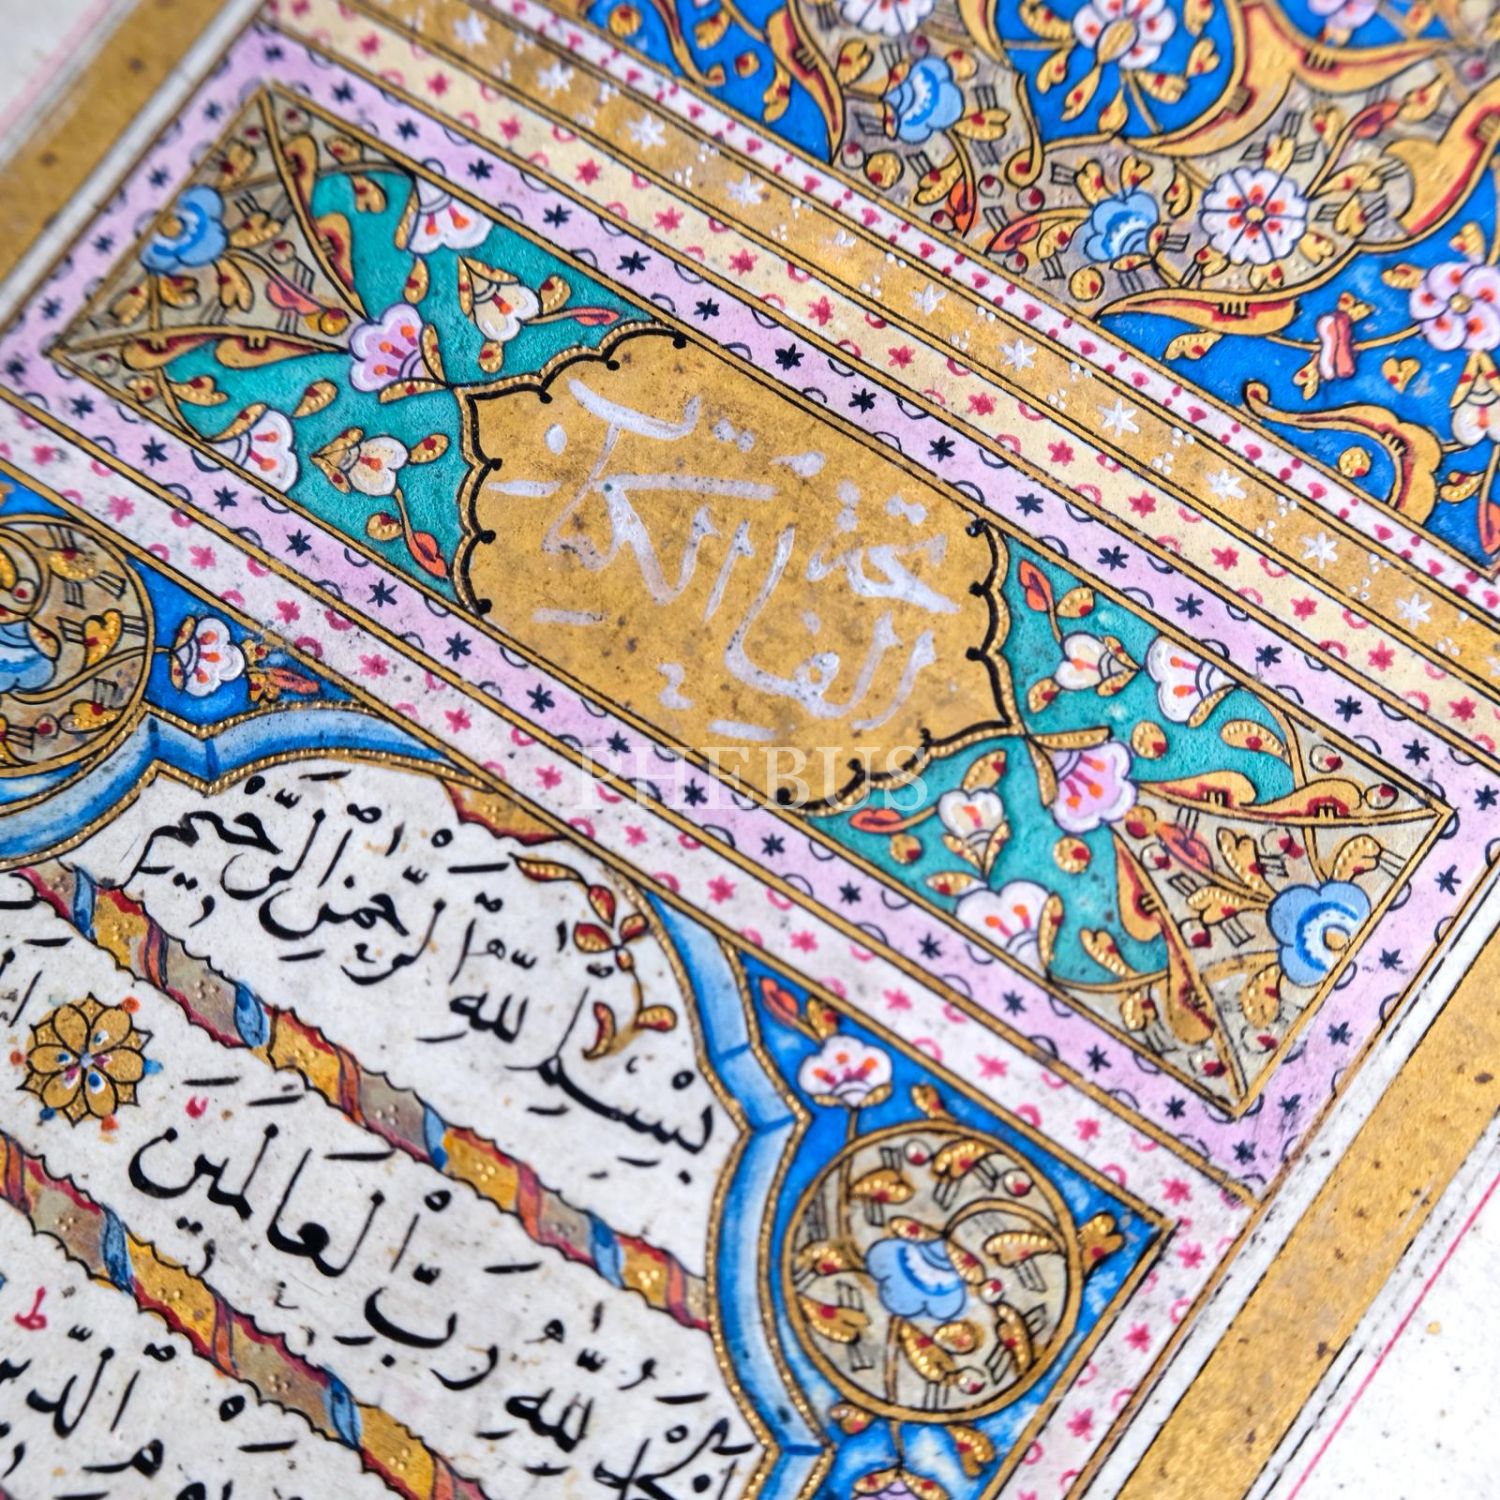 فاتحة الكتاب
PHEBUS
بِسْمِ اللّٰهِ الرَّحْمٰنِ الرَّحِيمِ
اَلْحَمْدُ لِلّٰهِ رَبِّ الْعَالَمِينَ
يَوْمِ الدِّينِ